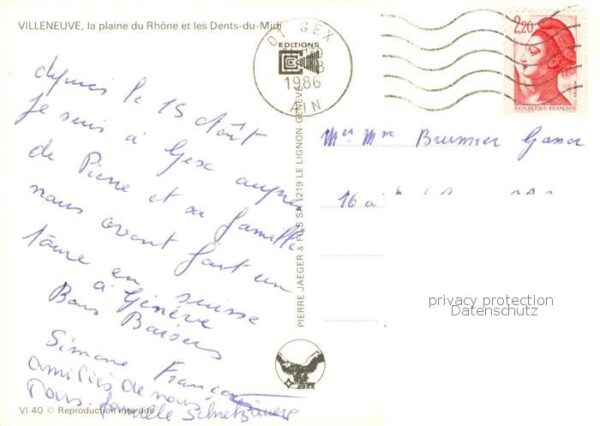 VILLENEUVE, la plaine du Rhône et les Dents-du-Midi
depuis le 15 Août
Je suis à Gex auprès
de Pierre et sa famille
nous avont fait un
toure en suisse
à Genève
Bons Baisers
Simone
amitiés de nous
tous. famille
VI 40 © Reproduction interdite
EDITIONS
PIERRE JAEGER & FILS SA 1219 LE LIGNON-GENÈVE
01 GEX
1986
AIN
2,20
REPUBLIQUE FRANÇAISE
Mer Mme Brunner
16
privacy protection
Datenschutz